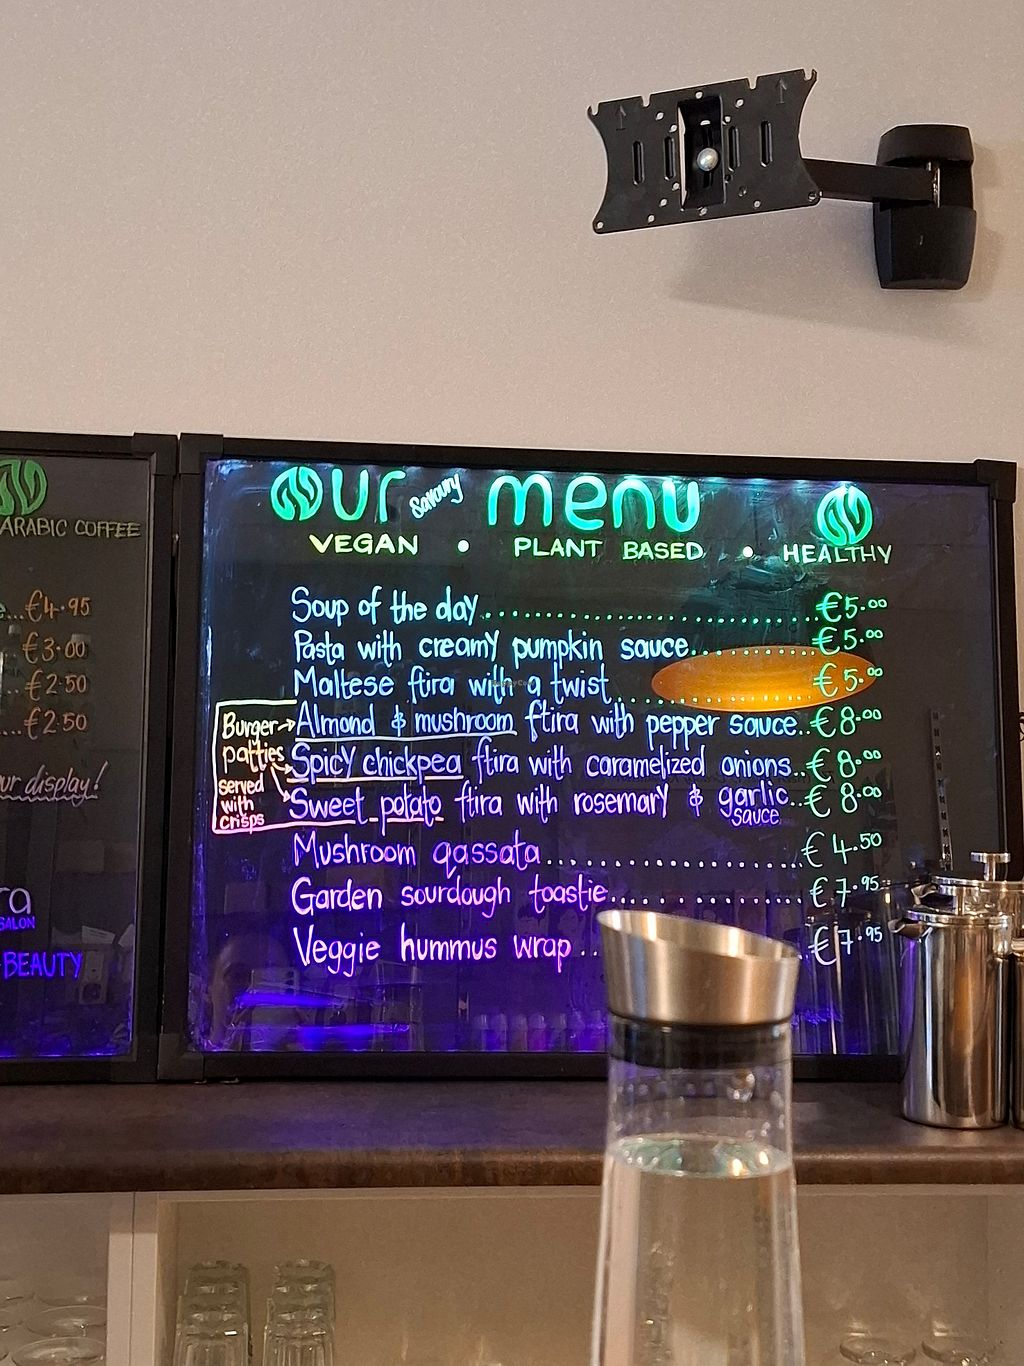 ARABIC COFFEE
€4.95
€3.00
€2.50
€2.50
display!
SALON
BEAUTY
OUR Savoury menu
VEGAN • PLANT BASED • HEALTHY
Soup of the day..............................€5.00
Pasta with creamy pumpkin sauce............€5.00
Maltese ftira with a twist..................€5.00
Almond & mushroom ftira with pepper sauce..€8.00
Spicy chickpea ftira with caramelized onions..€8.00
Sweet potato ftira with rosemary & garlic sauce..€8.00
Burger patties served with crisps
Mushroom qassata..........................€4.50
Garden sourdough toastie..................€7.95
Veggie hummus wrap...€7.95